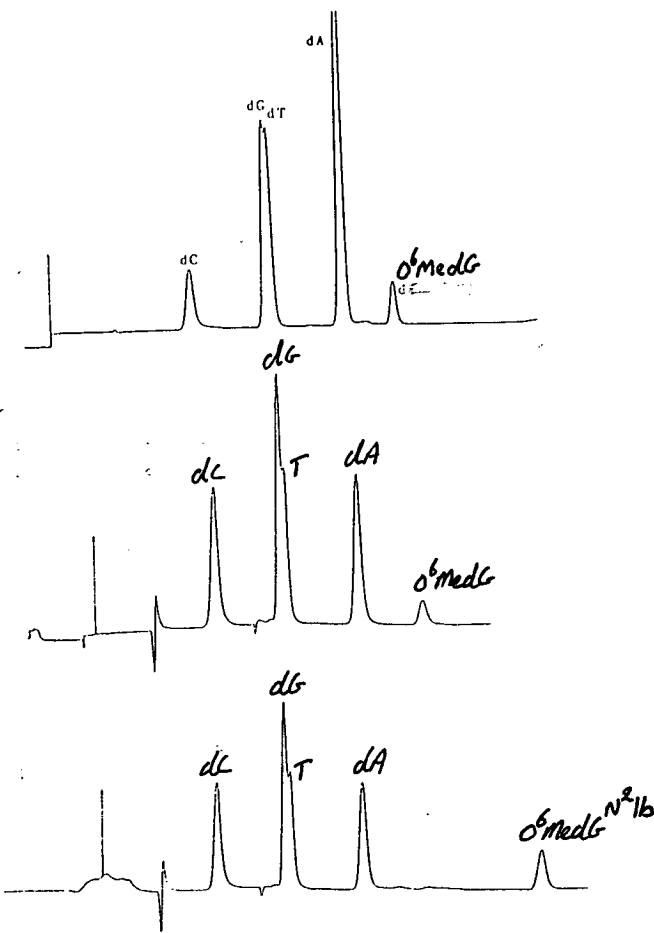 dA
dG dT
dC
O⁶MedG
dG
dC T dA
O⁶MedG
dG
dC T dA
O⁶MedG N² Ib